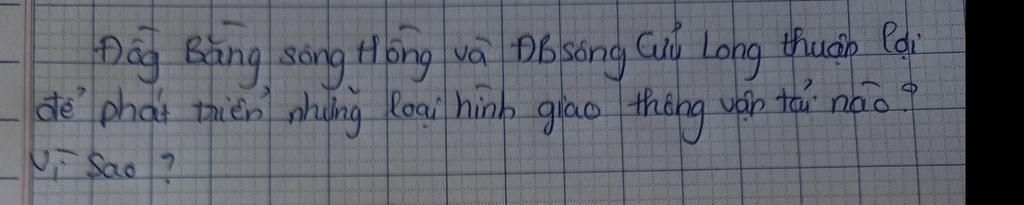 Đồg Bằng sông Hồng và ĐB sông Cửu Long thuận lợi
để phát triển những loại hình giao thông vận tải nào?
Vì sao?